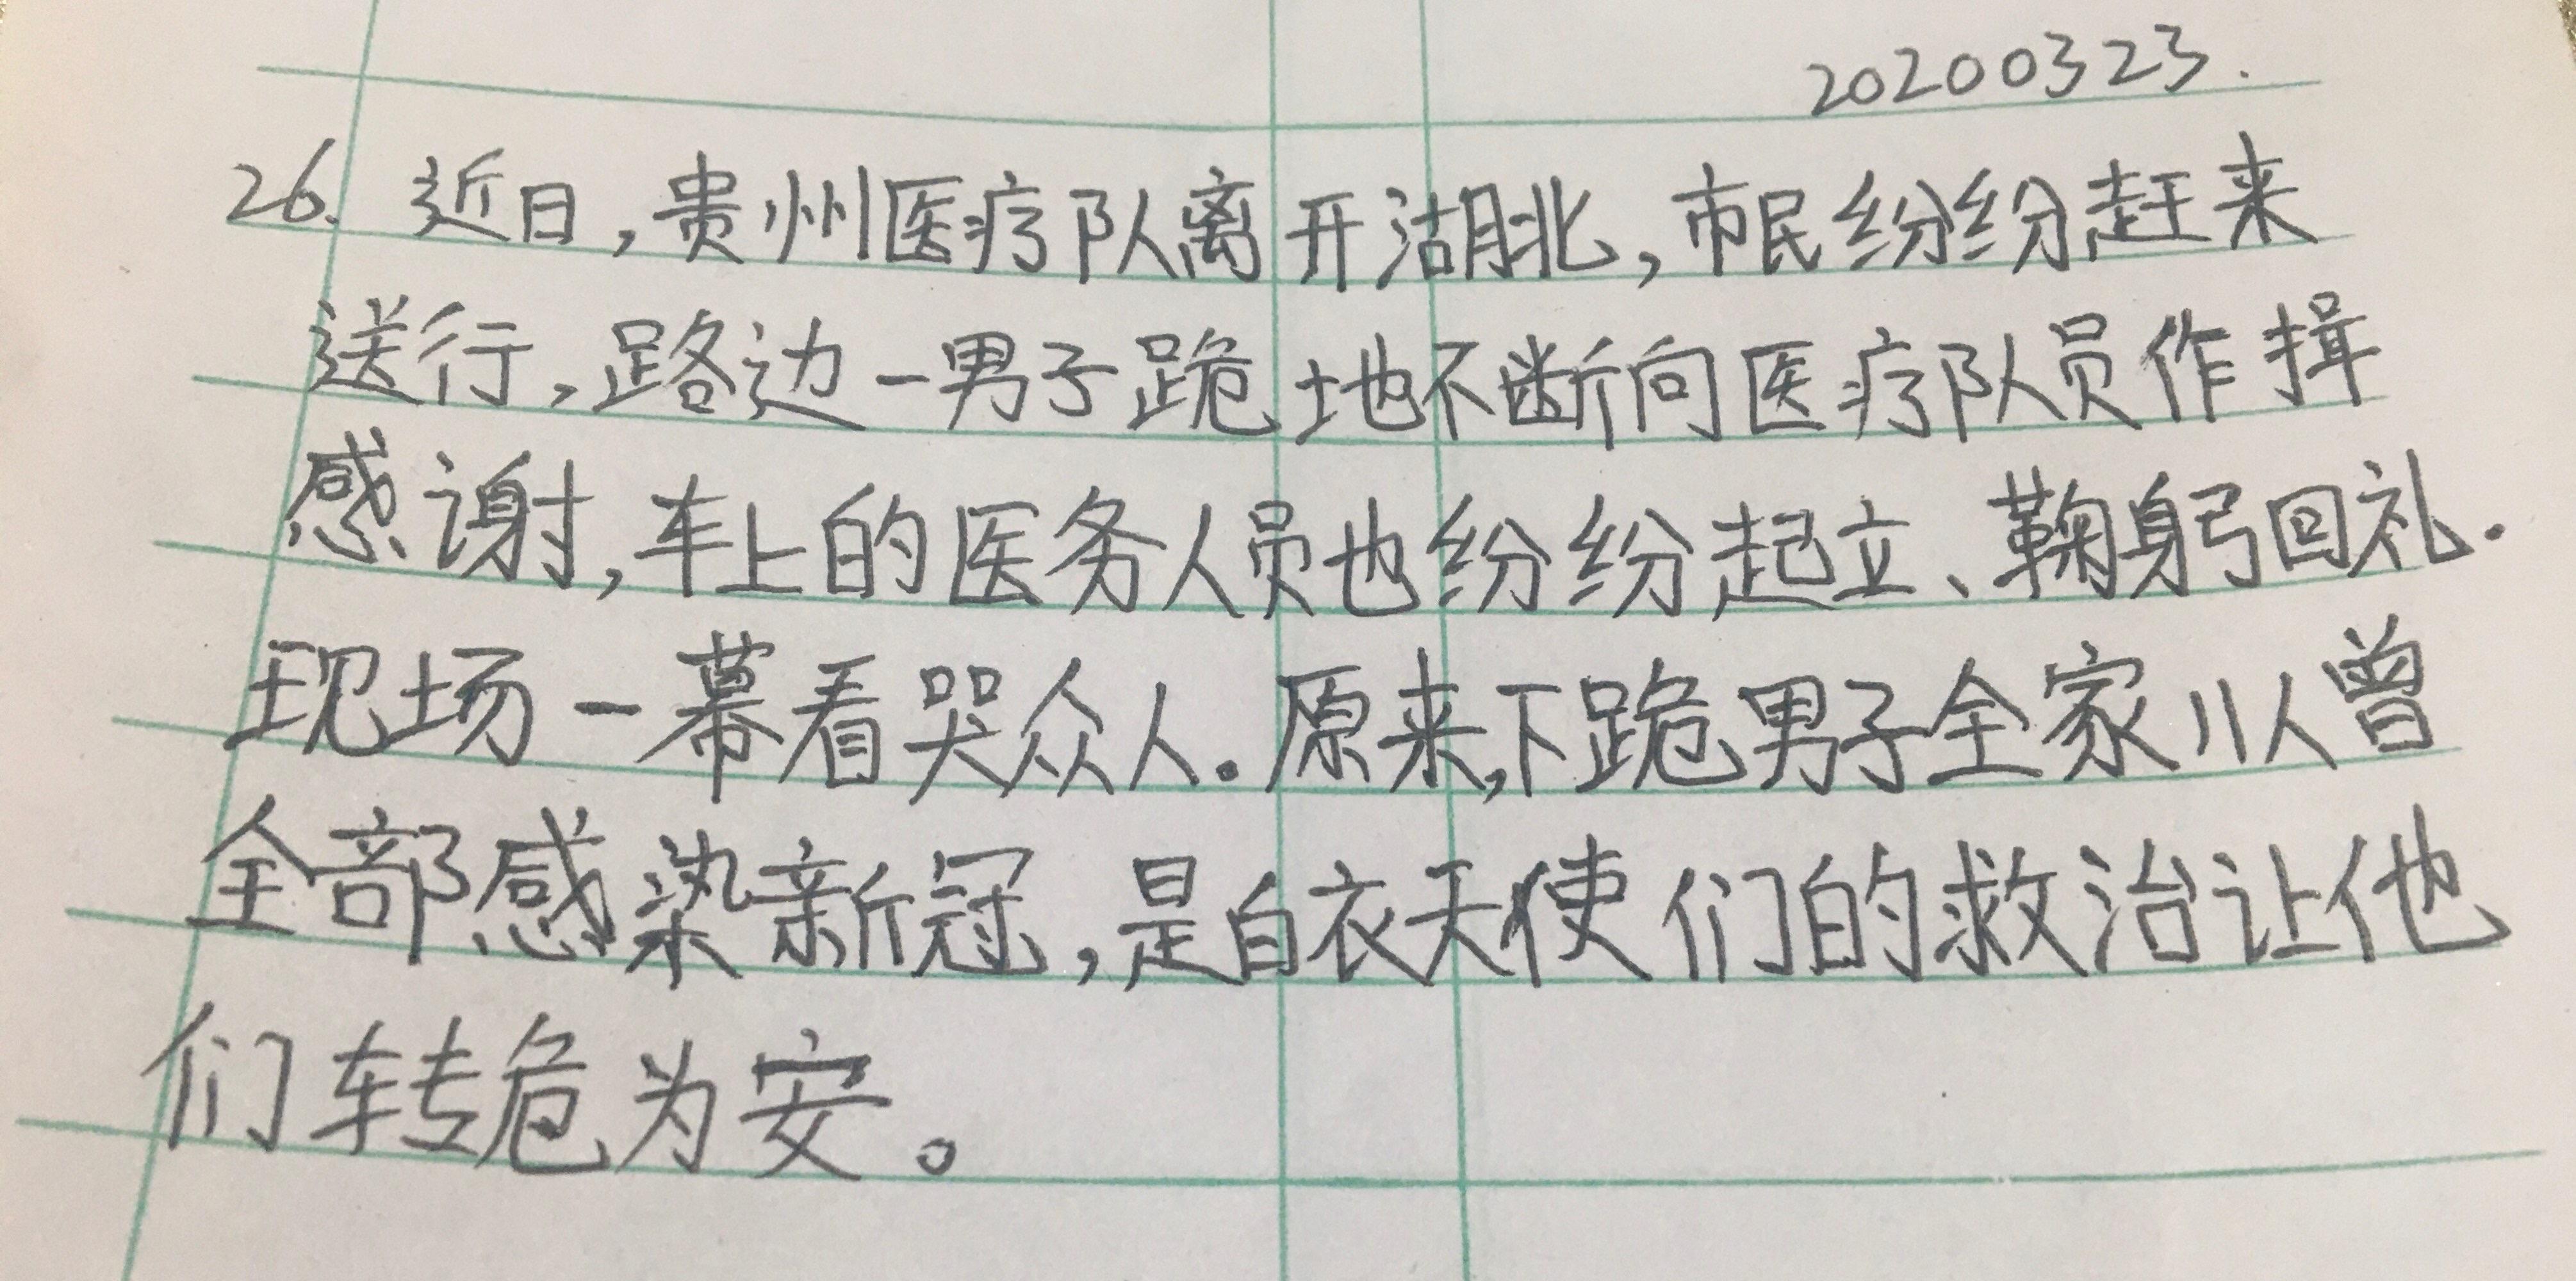 20200323.
26. 近日,贵州医疗队离开湖北,市民纷纷赶来
送行,路边一男子跪地不断向医疗队员作揖
感谢,车上的医务人员也纷纷起立、鞠躬回礼.
现场一幕看哭众人.原来,下跪男子全家11人曾
全部感染新冠,是白衣天使们的救治让他
们转危为安。